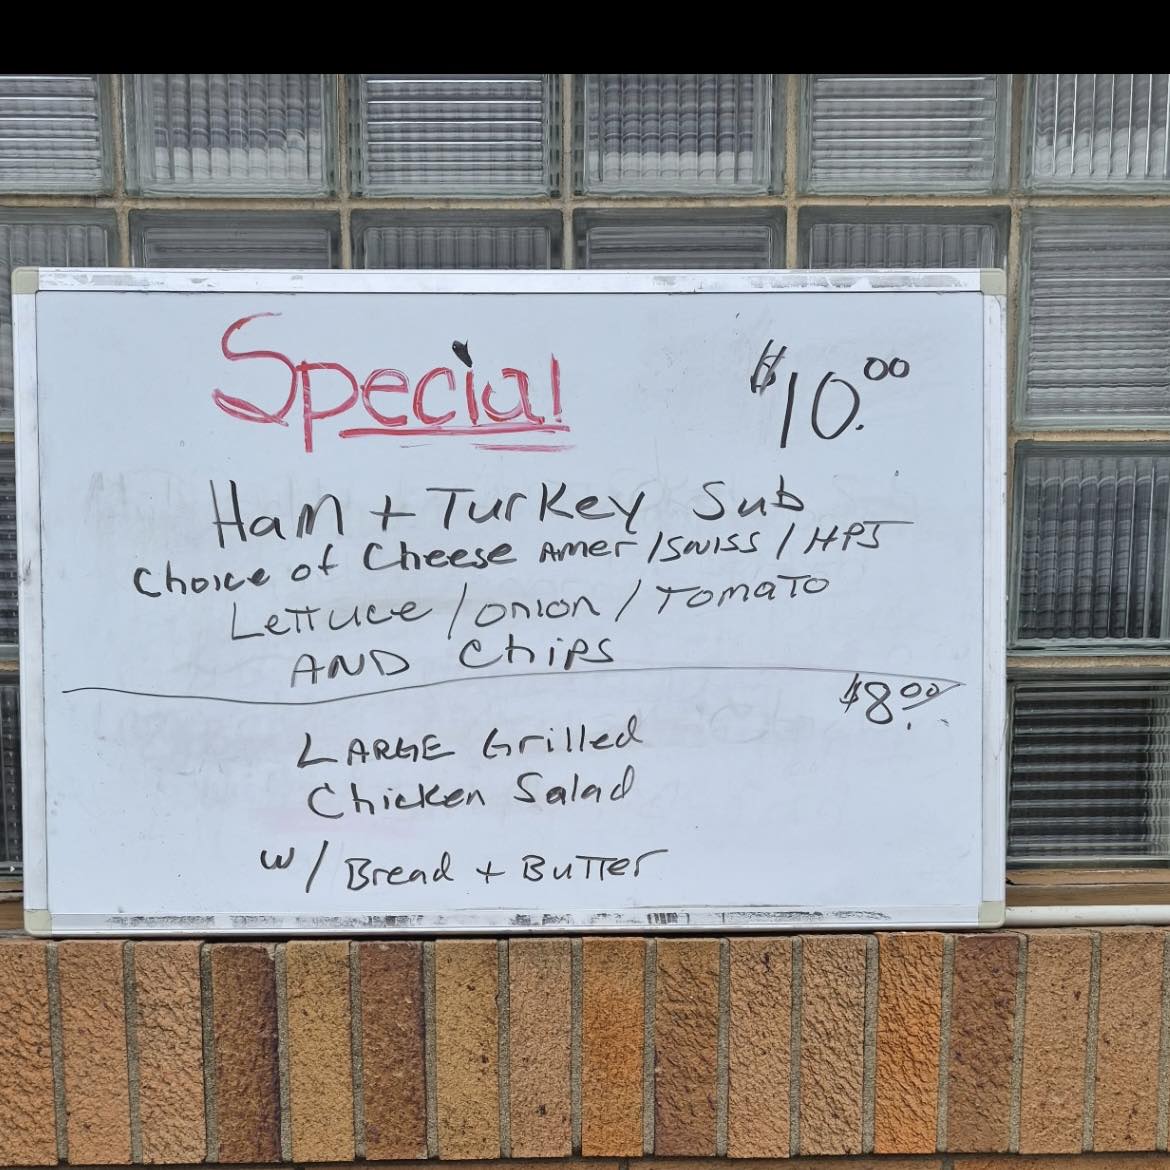 Special $10.00
Ham + Turkey Sub
Choice of Cheese Amer/Swiss/HPJ
Lettuce/onion/Tomato
AND Chips
$8.00
LARGE Grilled
Chicken Salad
w/ Bread + Butter